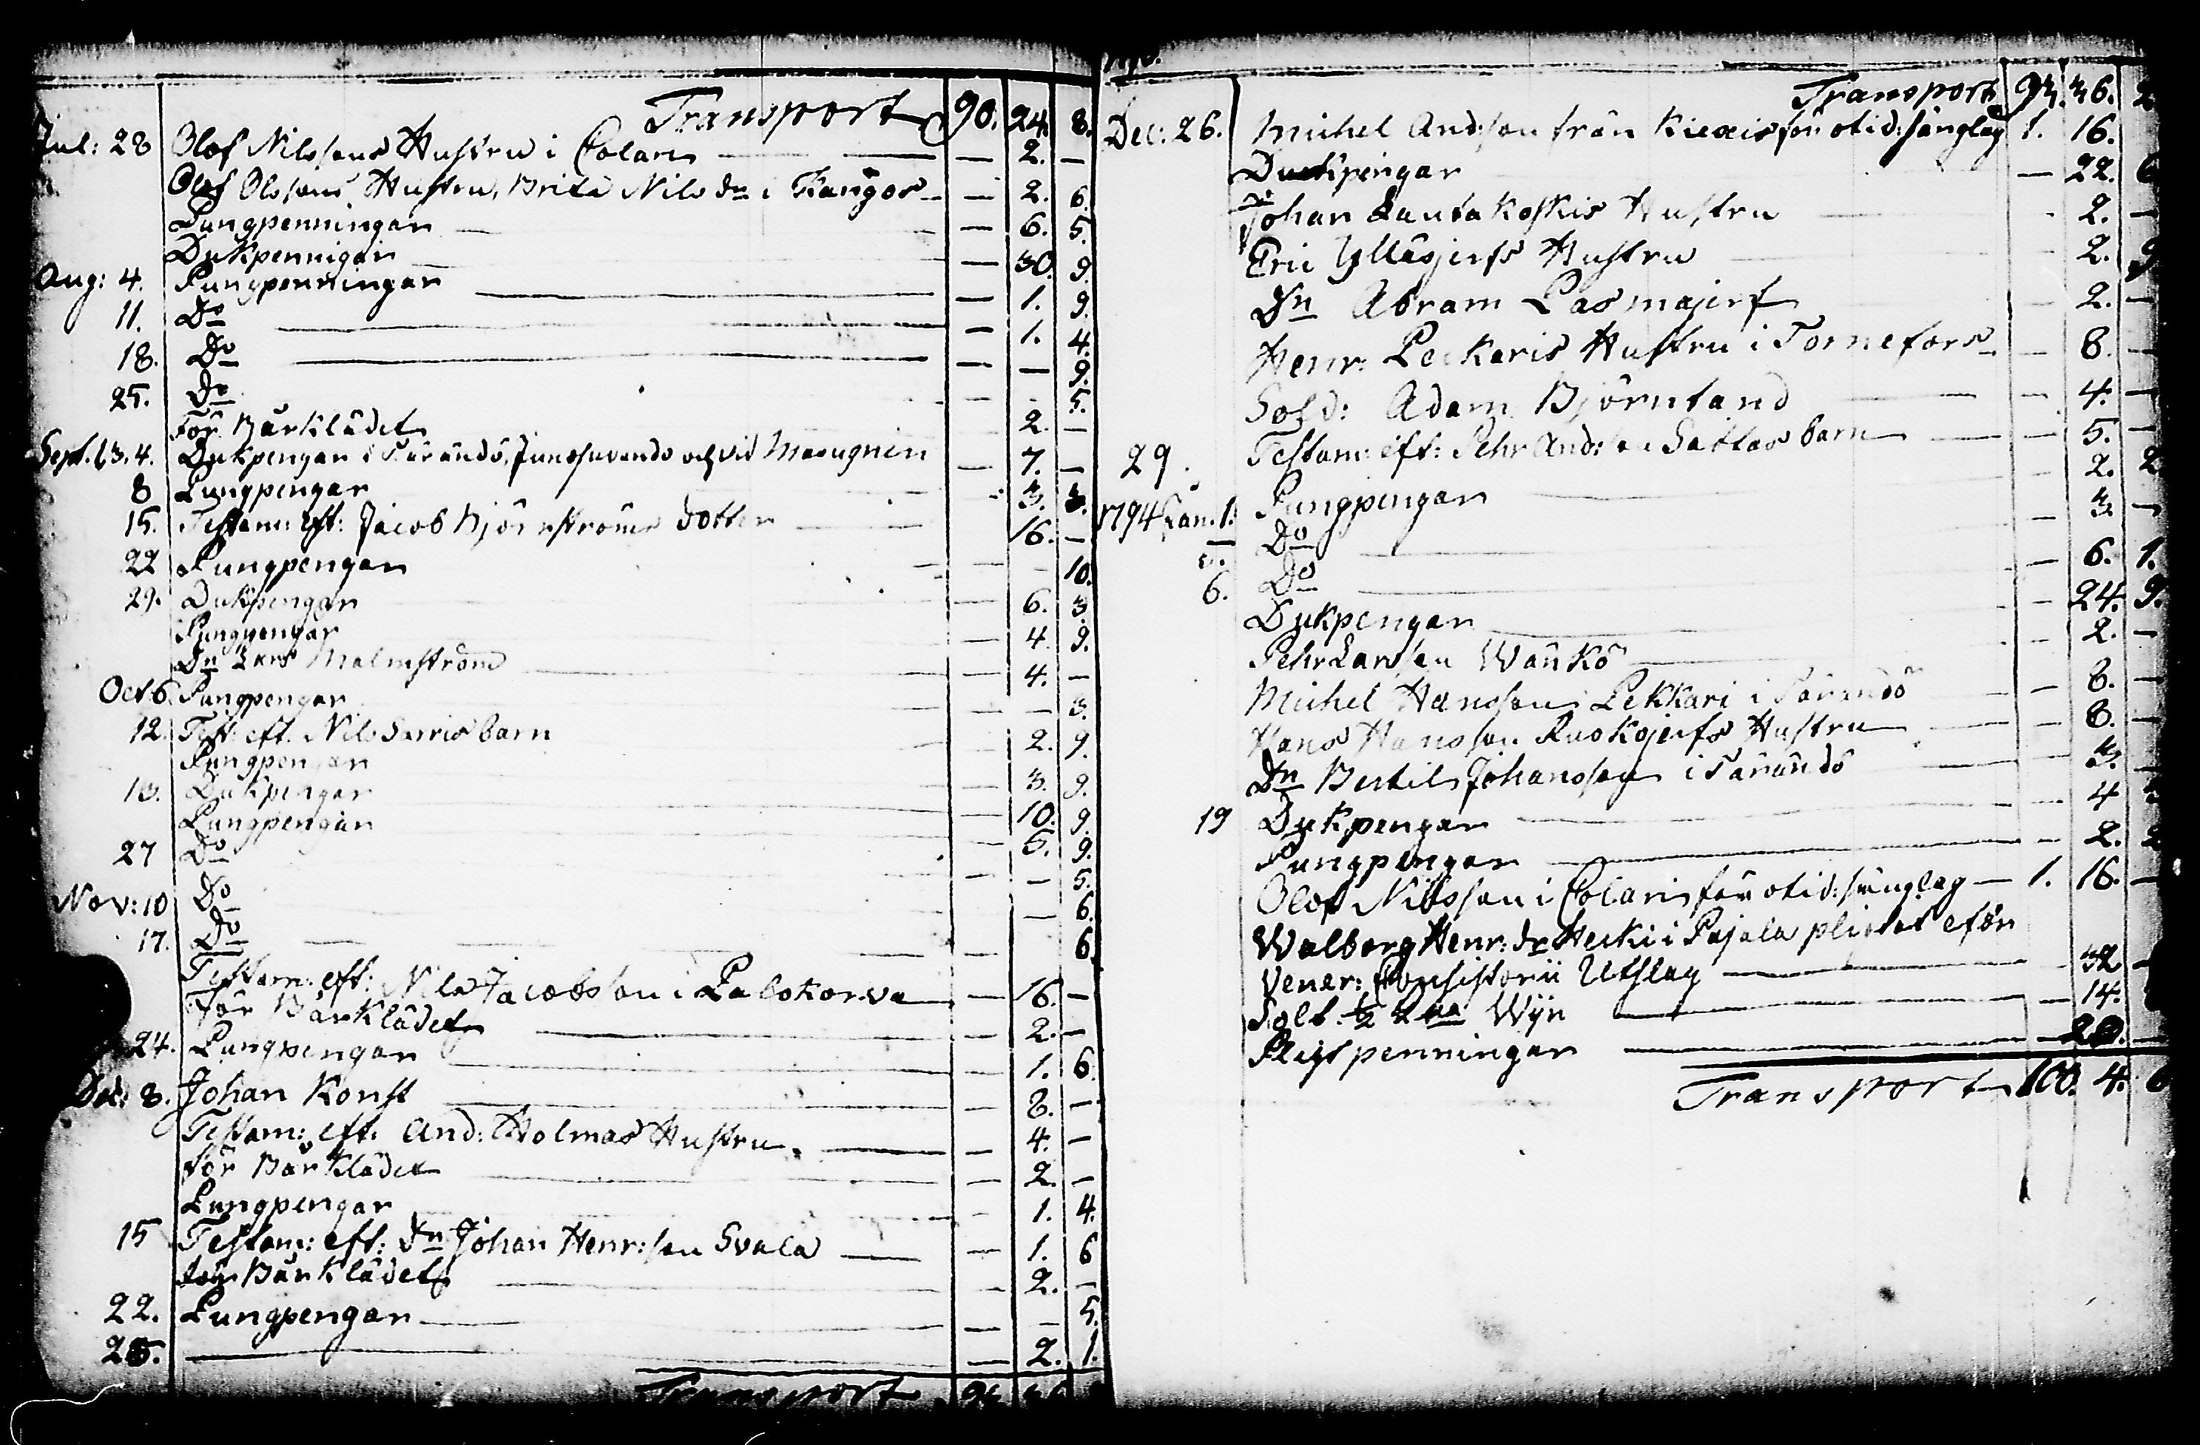 Transport 90. 24. 8.
Jul: 28 Olof Nilssons Hustru i Colari — 2. —
Olof Olssons Hustru, Brita Nils dr i Kangos — 2. 6.
Pungpenningar — 6. 5.
Dukpennigar — 30. 9.
Aug: 4. Pungpenningar — 1. 9.
11. Do — 1. 4.
18. Do — — 9.
25. Do - - 5.
För Bårklädet 2. —
Sept. 1,3,4. Dukpengar i Tärändö, Junosuvando och vid Masugnen — 7. —
8 Pungpengar 3. 3.
15. Testam: eft: Jacob Björnströms dotter 16. —
22 Pungpengar — - 10.
29. Dukpengar — 6. 3
Pungpengar — 4. 9.
Dn Lars Malmström — 4. —
Oct 6 Pungpengar — — 3.
12. Test: eft. Nils Servis barn — 2. 9.
Pungpengar — 3. 9.
13. Dukpengar — 10. 9.
Pungpengar — 5. 9.
27 Do — — 5.
Nov: 10 Do — 6.
17. Do — 6.
Testam: eft: Nils Jacobsson i Palokorva — 16. —
För Bårklädet — 2. —
24. Pungpengar — 1. 6.
Dec: 8. Johan Konst — 8. —
Testam: eft: And: Holmas Hustru — 4. —
för Bårklädet — 2. —
Pungpengar — 1. 4.
15 Testam: eft: dn Johan Henr:son Svala — 1. 6
för Bårklädet — 2. —
22. Pungpengar — — 5.
25. — 2. 1.
Transport
Transport 93. 36. 2
Dec: 26. Michel And:son från Kiexis för otid: sänglag 1. 16.
Dukpengar — 22. 6
Johan Lautakoskis Hustru - 2. —
Eric Yllesjerfs Hustru 2. 9
Dn Abram Pasmajerf — 2. —
Henr: Peckaris Hustru i Tornefors — 8. —
Sold: Adam Björnland — 4. —
Testam: eft: Pehr And:son Sattas barn — 5. —
29. Pungpengar 2. 2
1794 Jan. 1. Do — 3. —
5. Do — 6. 1.
6. Do — 24. 9.
Dukpengar - 2. —
Pehr Larsson Wänkö
Michel Hansson Pekkari i Tärändö — 8. —
Hans Hansson Ruokojerfs Hustru — 8. —
Dn Bertil Johansson i Tärändö 3. —
19 Dukpengar — 4
Pungpengar — 2. 2
Olof Nilsson i Colari för otid: sänglag — 1. 16. —
Walborg Henr: dr Heiki i Pajala efter
Vener: Consistorii Utslag — 32 —
Solt: 1/2 Wijn — 14.
Pligtpenningar — 20. —
Transport 100. 4. 6